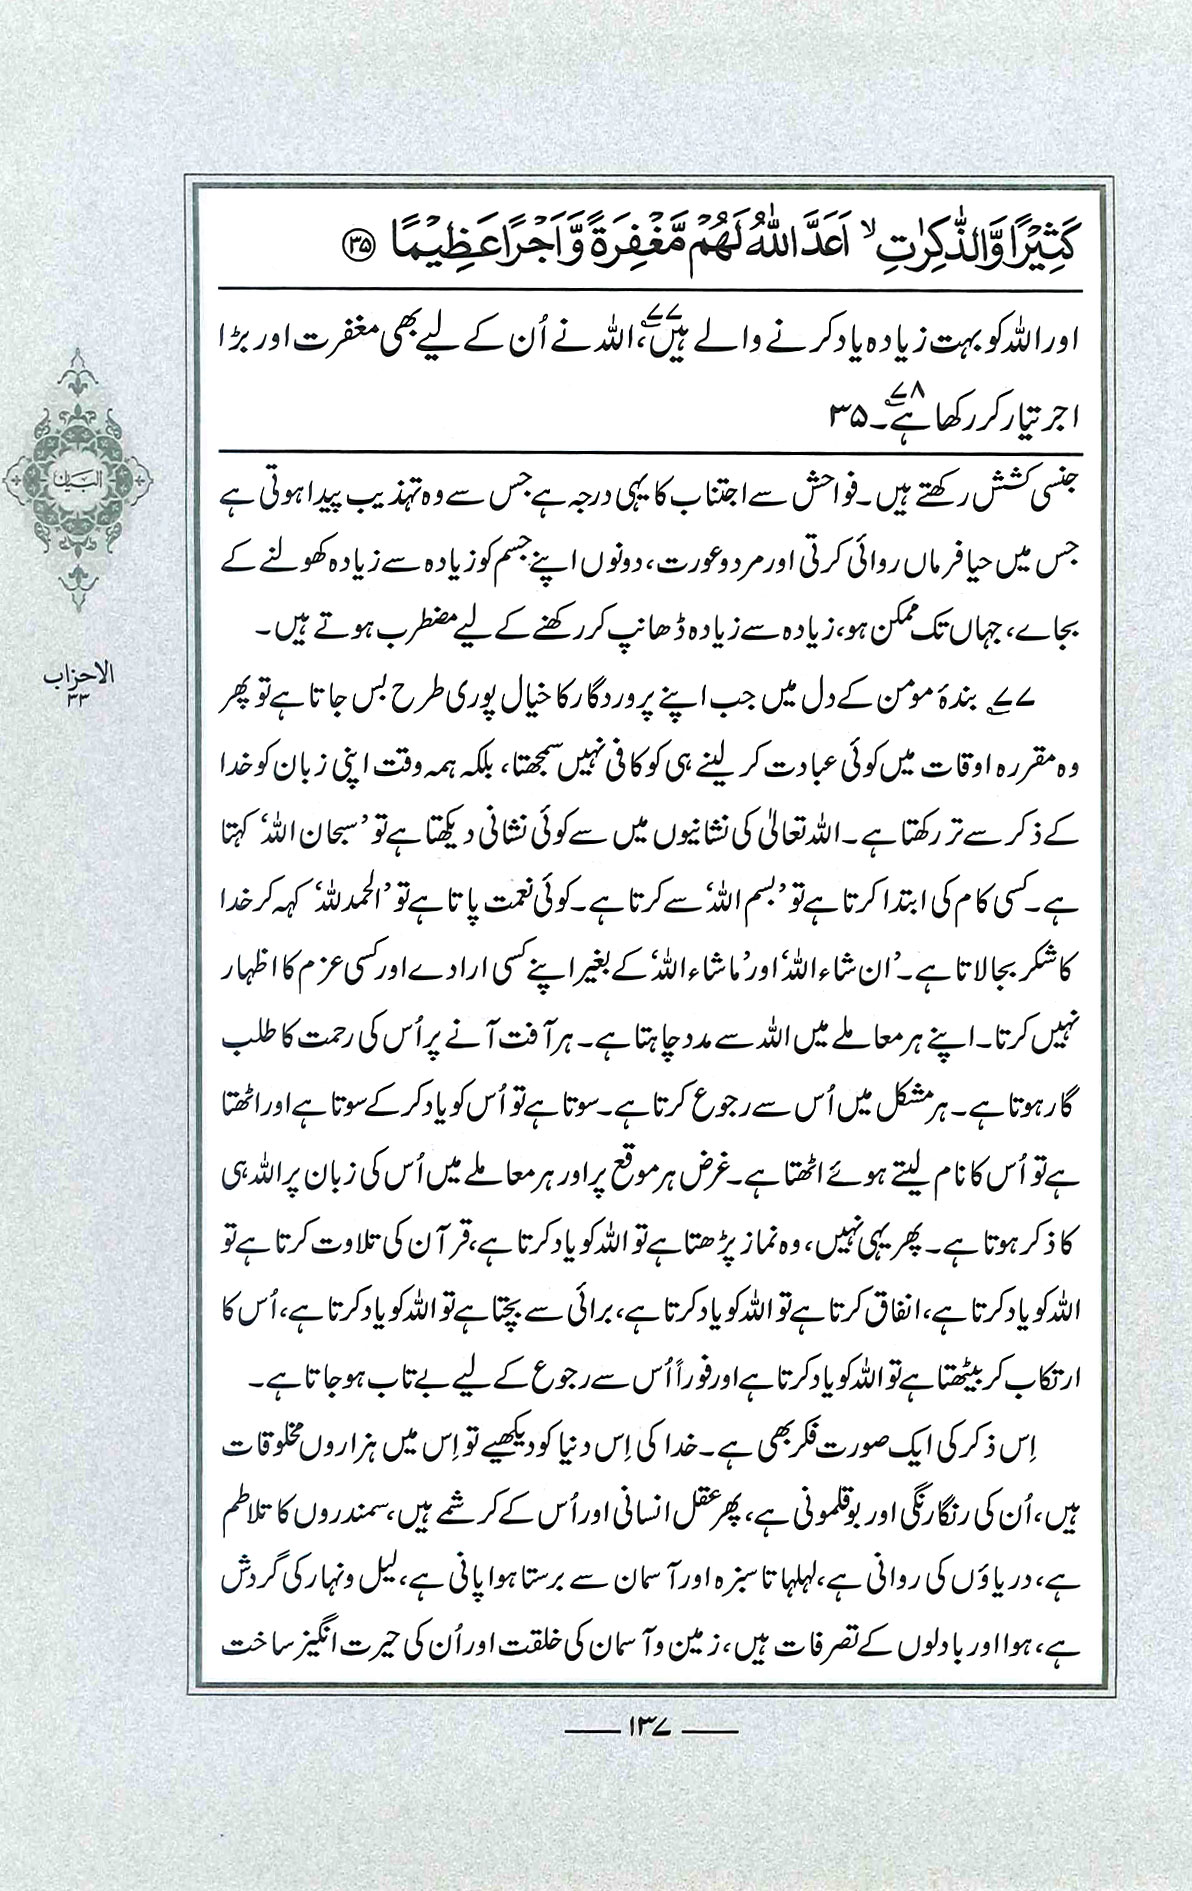 كَثِيْرًا وَّالذّٰكِرٰتِ ۙ اَعَدَّ اللّٰهُ لَهُمْ مَّغْفِرَةً وَّاَجْرًا عَظِيْمًا ﴿۳۵﴾
اور اللہ کو بہت زیادہ یاد کرنے والے ہیں۷۷؎، اللہ نے اُن کے لیے بھی مغفرت اور بڑا
اجر تیار کر رکھا ہے۷۸؎۔ ۳۵
جنسی کشش رکھتے ہیں۔ فواحش سے اجتناب کا یہی درجہ ہے جس سے وہ تہذیب پیدا ہوتی ہے
جس میں حیا فرماں روائی کرتی اور مرد و عورت، دونوں اپنے جسم کو زیادہ سے زیادہ کھولنے کے
بجاے، جہاں تک ممکن ہو، زیادہ سے زیادہ ڈھانپ کر رکھنے کے لیے مضطرب ہوتے ہیں۔
۷۷؎ بندۂ مومن کے دل میں جب اپنے پروردگار کا خیال پوری طرح بس جاتا ہے تو پھر
وہ مقررہ اوقات میں کوئی عبادت کر لینے ہی کو کافی نہیں سمجھتا، بلکہ ہمہ وقت اپنی زبان کو خدا
کے ذکر سے تر رکھتا ہے۔ اللہ تعالیٰ کی نشانیوں میں سے کوئی نشانی دیکھتا ہے تو ’سبحان اللہ‘ کہتا
ہے۔ کسی کام کی ابتدا کرتا ہے تو ’بسم اللہ‘ سے کرتا ہے۔ کوئی نعمت پاتا ہے تو ’الحمد للہ‘ کہہ کر خدا
کا شکر بجا لاتا ہے۔ ’ان شاء اللہ‘ اور ’ما شاء اللہ‘ کے بغیر اپنے کسی ارادے اور کسی عزم کا اظہار
نہیں کرتا۔ اپنے ہر معاملے میں اللہ سے مدد چاہتا ہے۔ ہر آفت آنے پر اُس کی رحمت کا طلب
گار ہوتا ہے۔ ہر مشکل میں اُس سے رجوع کرتا ہے۔ سوتا ہے تو اُس کو یاد کر کے سوتا ہے اور اٹھتا
ہے تو اُس کا نام لیتے ہوئے اٹھتا ہے۔ غرض ہر موقع پر اور ہر معاملے میں اُس کی زبان پر اللہ ہی
کا ذکر ہوتا ہے۔ پھر یہی نہیں، وہ نماز پڑھتا ہے تو اللہ کو یاد کرتا ہے، قرآن کی تلاوت کرتا ہے تو
اللہ کو یاد کرتا ہے، انفاق کرتا ہے تو اللہ کو یاد کرتا ہے، برائی سے بچتا ہے تو اللہ کو یاد کرتا ہے، اُس کا
ارتکاب کر بیٹھتا ہے تو اللہ کو یاد کرتا ہے اور فوراً اُس سے رجوع کے لیے بے تاب ہو جاتا ہے۔
اِس ذکر کی ایک صورت فکر بھی ہے۔ خدا کی اِس دنیا کو دیکھیے تو اِس میں ہزاروں مخلوقات
ہیں، اُن کی رنگا رنگی اور بوقلمونی ہے، پھر عقل انسانی اور اُس کے کرشمے ہیں، سمندروں کا تلاطم
ہے، دریاؤں کی روانی ہے، لہلہاتا سبزہ اور آسمان سے برستا ہوا پانی ہے، لیل و نہار کی گردش
ہے، ہوا اور بادلوں کے تصرفات ہیں، زمین و آسمان کی خلقت اور اُن کی حیرت انگیز ساخت
البیان
الاحزاب
۳۳
۱۳۷